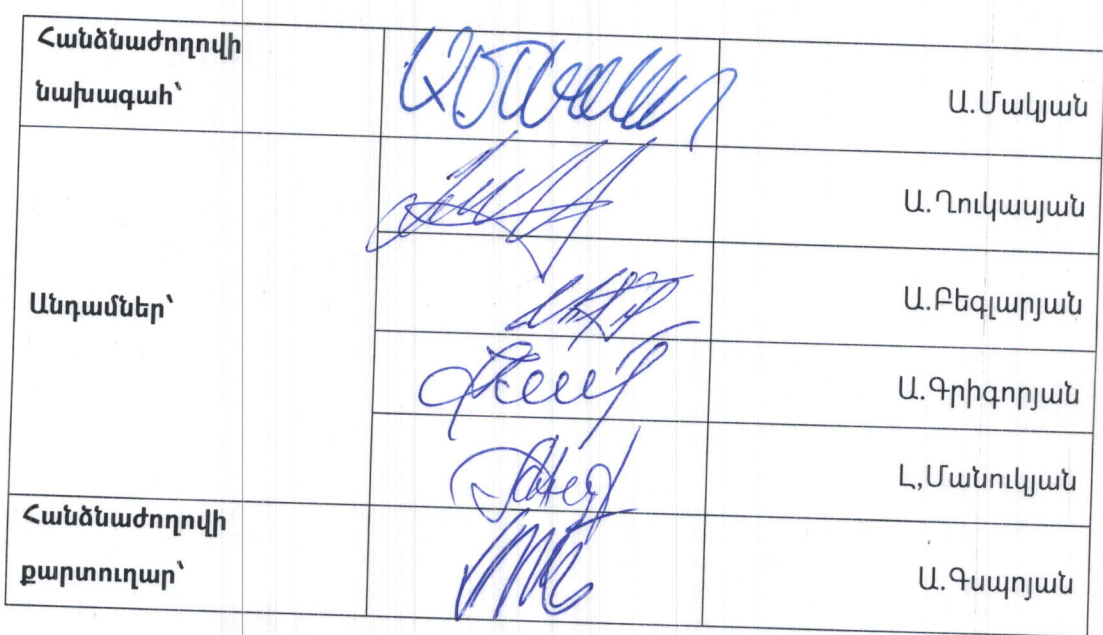 Հանձնաժողովի
նախագահ՝
Ա.Մակյան
Անդամներ՝
Ա.Ղուկասյան
Ա.Բեգլարյան
Ա.Գրիգորյան
Լ,Մանուկյան
Հանձնաժողովի
քարտուղար՝
Ա.Գսպոյան